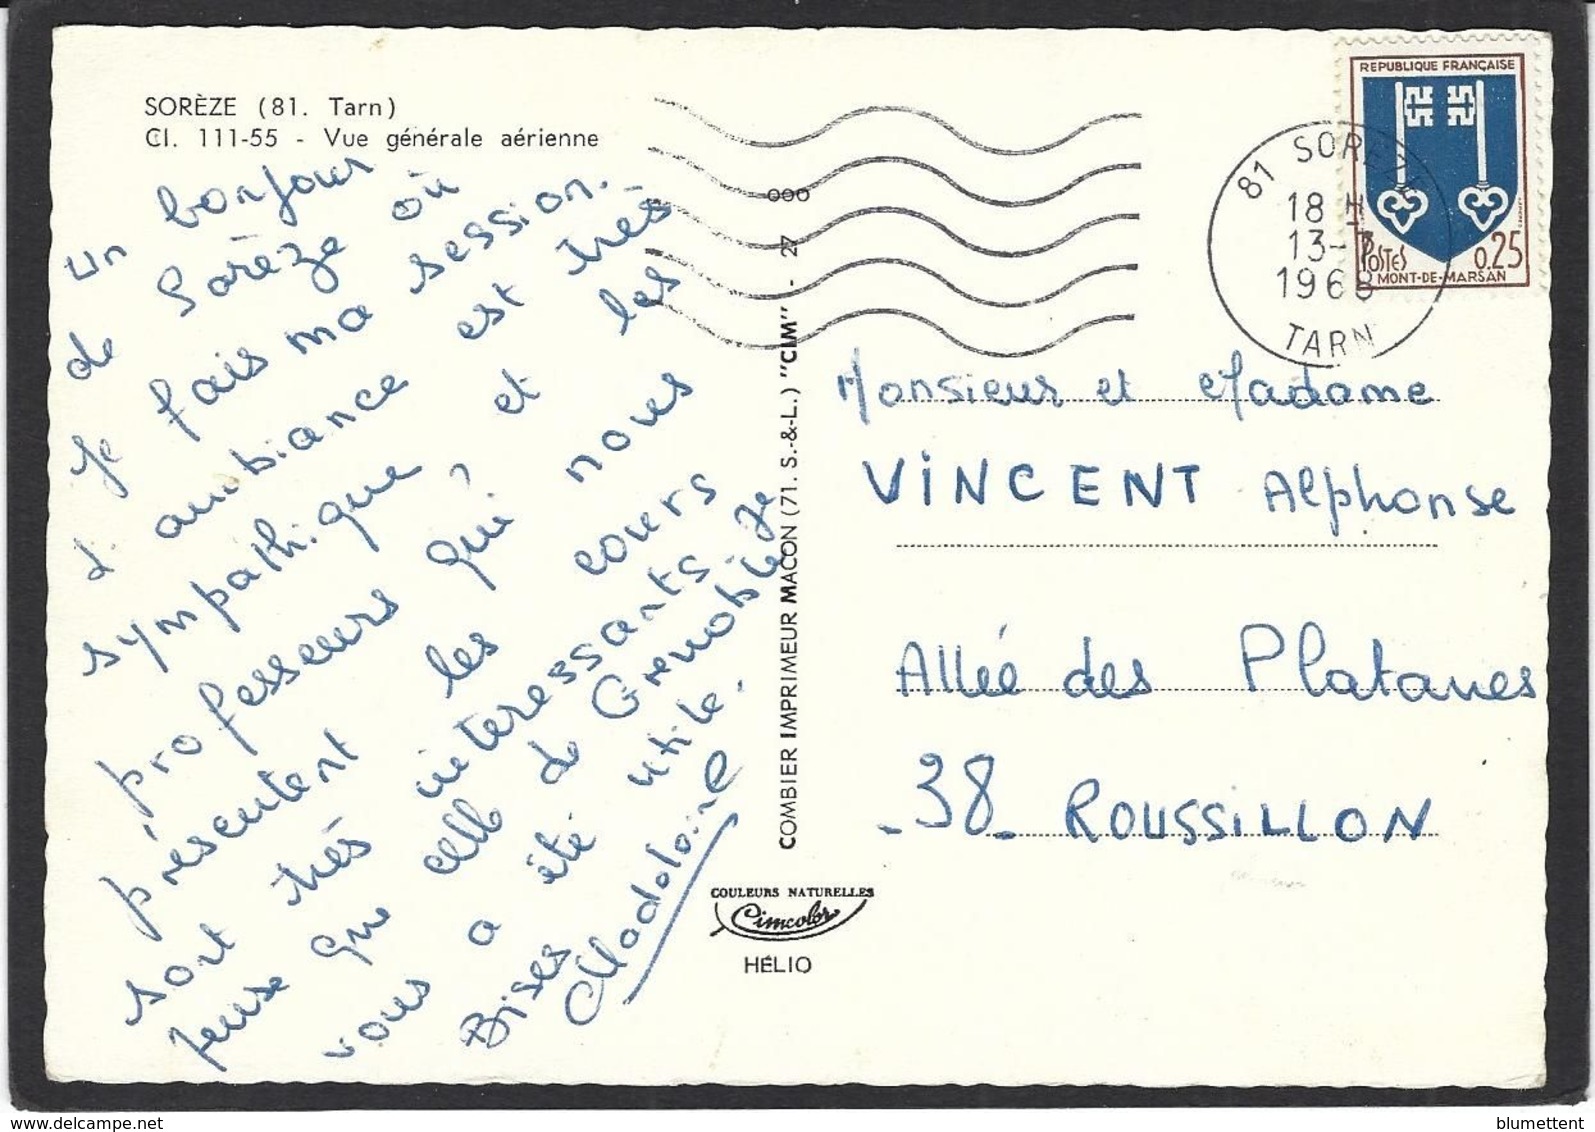 SORÈZE (81. Tarn)
Cl. 111-55 - Vue générale aérienne
un bonjour
de Sorèze où
je fais ma session.
L'ambiance est très
sympathique, et les
professeurs qui nous
présentent les cours
sont très interessants. Je
pense que celle de Grenoble
vous a été utile.
Bises
Madeleine
COMBIER IMPRIMEUR MACON (71. S.-&-L.) "CIM" - 27 000
COULEURS NATURELLES
Cimcolor
HÉLIO
REPUBLIQUE FRANÇAISE
POSTES 0,25
MONT-DE-MARSAN
81 SORÈZE
18 H
13-7
1968
TARN
Monsieur et Madame
VINCENT Alphonse
Allée des Platanes
-38- ROUSSILLON
www.delcampe.net
blumettent